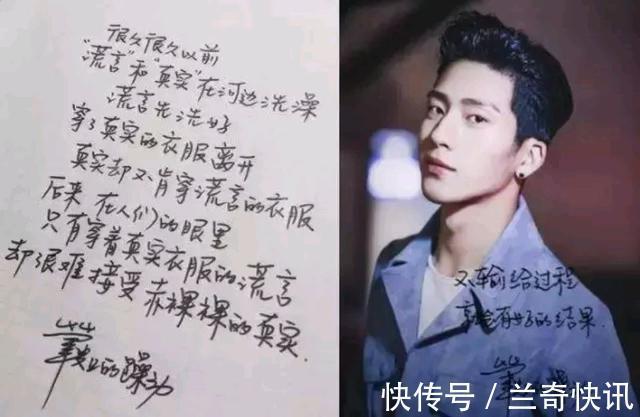 很久很久以前
“谎言”和“真实”在河边洗澡
谎言先洗好
穿了真实的衣服离开
真实却不肯穿谎言的衣服
后来 在人们的眼里
只有穿着真实衣服的谎言
却很难接受赤裸裸的真实.
的躁动
不输给过程
就会有好的结果.
快传号/兰奇快讯